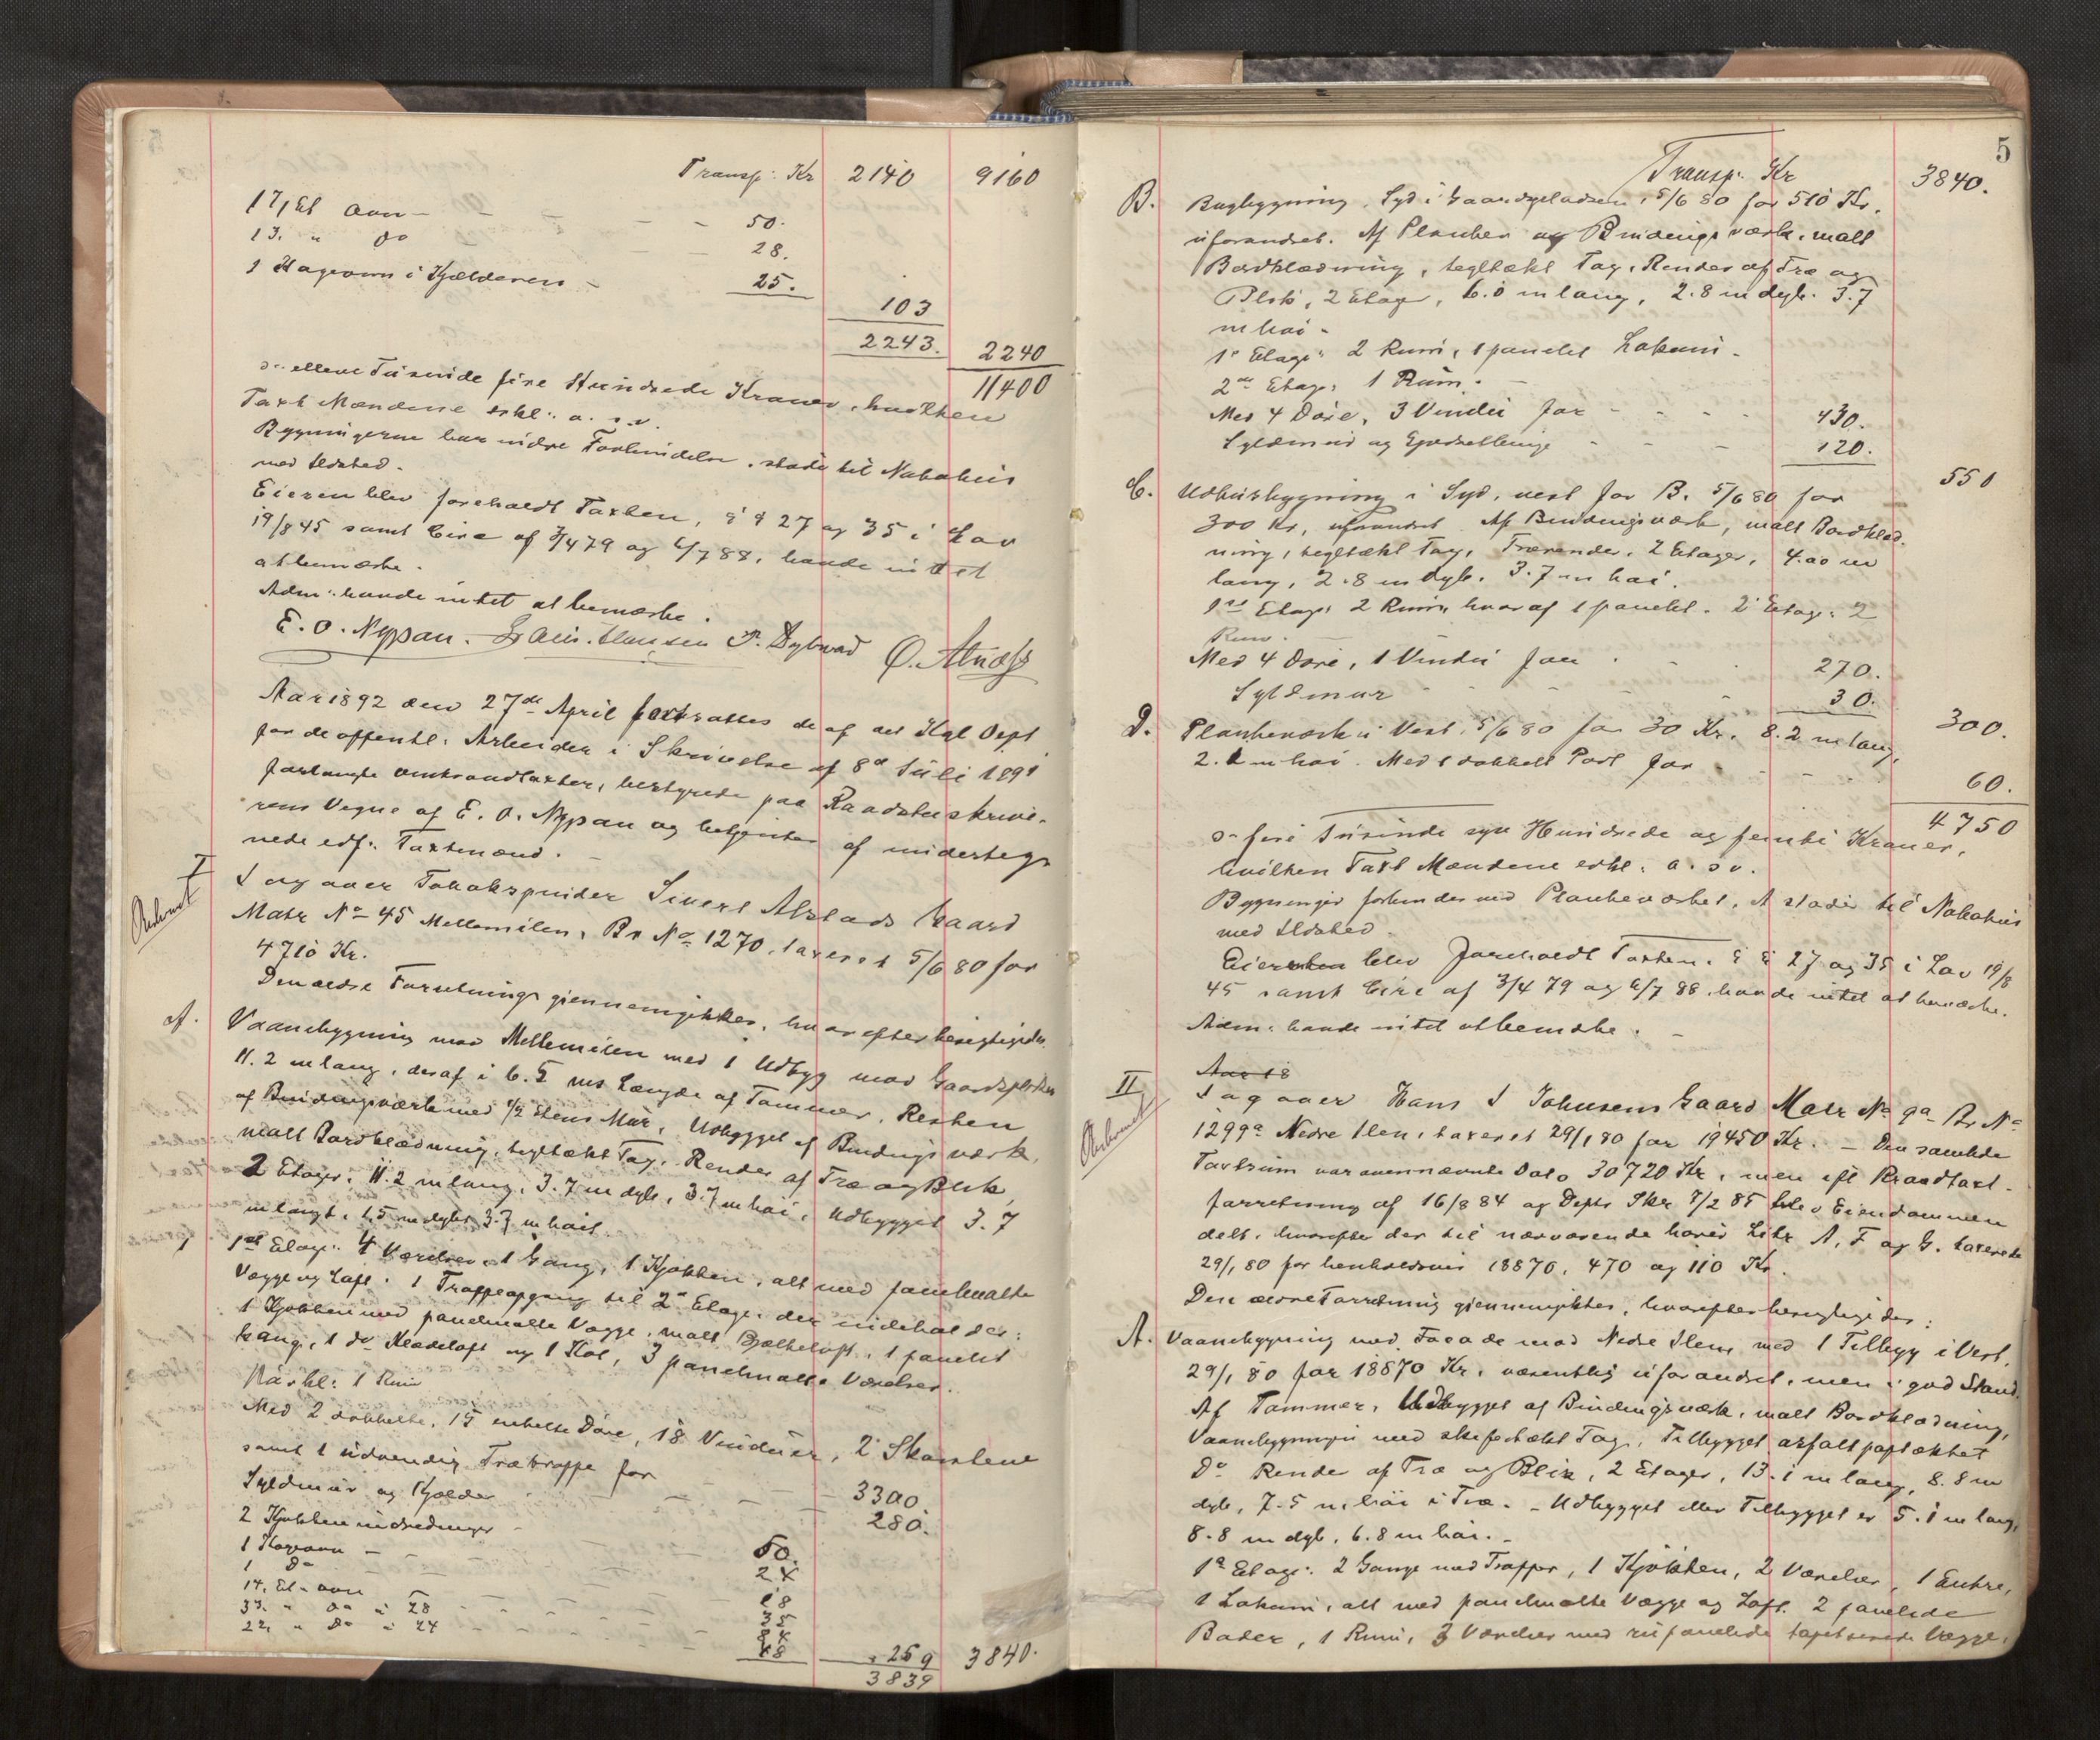 Transp: Kr 2140 9160
1 7, Et Ovn - 50.
1 3. " do 28.
1 Kageovn i Kjælderen - 25.
103
2243. 2240
11400
ɔ: elleve Tusinde fire Hundrede Kroner, hvilken
Taxt Mændene erkl: o. s. v.
Bygningerne har indre Forbindelse, støde til Nabohus
med Ildsted.
Eieren blev foreholdt Taxten, §§ 27 og 35 i Lov
19/8 45 samt Circ af 3/4 79 og 6/7 88, havde intet
at bemærke.
Adm: havde intet at bemærke.
E. O. Nypan. Hansen P. Dybwad O. Alnæss
Aar 1892 den 27de April fortsattes de af det Kgl Dept
for de offentl: Arbeider i Skrivelse af 8de Juli 1891
forlangte Ombrandtaxter, bestyrede paa Raadstuskrive-
rens Vegne af E. O. Nypan og betjente af undertegn
nede edf: Taxtmænd. -
I Sag over Tobakspinder Sivert Alstads Gaard
Matr No 45 Mellemilen, Br No 1270, taxeret 5/6 80 for
4710 Kr.
Den ældre Forretning gjennemgikkes, hvorefter besigtigedes.
A. Vaanebygning mod Mellemilen med 1 Udbyg mod Gaardspladsen
11.2 m lang, deraf i 6.5 ms Længde af Tømmer, Resten
af Bindingsværk med 1/2 Stens Mur, Udbygget af Bindingsværk,
malt Bordklædning, tegltækt Tag, Render af Træ og Blik,
2 Etager, 11.2 m lang, 3.7 m dyb, 3.7 m høi, Udbygget 3.7
m langt, 1.5 m dybt 3.7 m høit.
1 1ste Etage: 4 Værelser 1 Gang, 1 Kjøkken, alt med panelmalte
Vægge og Loft. 1 Trappeopgang til 2den Etage, der indeholder:
1 Kjøkken med panelmalte Vægge, malt Bjælkeloft, 1 panelet
Gang, 1 do Klædeloft og 1 Kot, 3 panelmalte Værelser.
Mørkl: 1 Rum
Med 2 dobbelte, 15 enkelte Døre, 18 Vinduer, 2 Skorstene
samt 1 udvendig Trætrappe for 3300.
Syldmur og Kjælder 280.
2 Kjøkkenindredninger - 50.
1 Kageovn - 24
1 do 18
1 4, Et - ovn 35
3 3. " do à 28 84
2 2, " do à 24 48
259 3840.
3839
5
Transp: Kr 3840.
B. Bagbygning, Syd i Gaardspladsen, 5/6 80 for 510 Kr.
uforandret. Af Planker og Bindingsværk, malt
Bordklædning, tegltækt Tag, Render af Træ og
Blik, 2 Etager, 6.0 m lang, 2.8 m dyb. 3.7
m høi -
1ste Etage: 2 Rum, 1 panelet Lokum -
2den Etage: 1 Rum. -
Med 4 Døre, 3 Vinduer for - 430.
Syldmur og 120.
550
C. Udhusbygning i Syd, vest for B. 5/6 80 for
300 Kr, uforandret. Af Bindingsværk, malt Bordklæd-
ning, tegltækt Tag, Trærender, 2 Etager, 4.00 m
lang, 2.8 m dyb. 3.7 m høi.
1ste Etage: 2 Rum, hvoraf 1 panelet. 2 Etage: 2
Rum.
Med 4 Døre, 1 Vindu for 270.
Syldmur 30.
300.
D. Plankeværk i Vest, 5/6 80 for 30 Kr. 8.2 m lang,
2.1 m høi. Med 1 dobbelt Port for 60.
4750
ɔ: fire Tusinde syv Hundrede og femti Kroner,
hvilken Taxt Mændene erkl: o. s. v.
Bygninger forbindes ved Plankeværket, A støder til Nabohus
med Ildsted.
Eieren blev foreholdt Taxten, §§ 27 og 35 i Lov 19/8
45 samt Circ af 3/4 79 og 6/7 88, havde intet at bemærke.
Adm: havde intet at bemærke. -
Aar 18
II Sag over Hans J Johnsens Gaard Matr No 9a Br No
1299a Nedre Ilen, taxeret 29/1 80 for 19450 Kr. - Den samlede
Taxtsum var ovennævnte Dato 30720 Kr, men eft Brandtaxt-
forretning af 16/8 84 og Depts Skr 7/2 85 blev Eiendommen
delt, hvorefter der til nærværende hører Litr A, F og G. taxerede
29/1 80 for henholdsvis 18870, 470 og 110 Kr.
Den ældre Forretning gjennemgikkes, hvorefter besigtigedes:
A. Vaanebygning med Facade mod Nedre Ilen, med 1 Tilbyg i Vest,
29/1 80 for 18870 Kr, væsentlig uforandret, men i god Stand.
Af Tømmer, Udbygget af Bindingsværk, malt Bordklædning,
Vaanebygningen med skifertækt Tag, Tilbygget asfaltpaptækket
Do Render af Træ og Blik, 2 Etager, 13.1 m lang, 8.8 m
dyb, 7.5 m høi i Træ. - Udbygget eller Tilbygget er 5.1 m lang,
8.8 m dyb, 6.8 m høi. -
1ste Etage: 2 Gange med Trapper, 1 Kjøkken, 2 Værelser, 1 Entre,
1 Lokum, alt med panelmalte Vægge og Loft. 2 panelede
Boder, 1 Rum, 3 Værelser med rupanelede tapetserede Vægge,